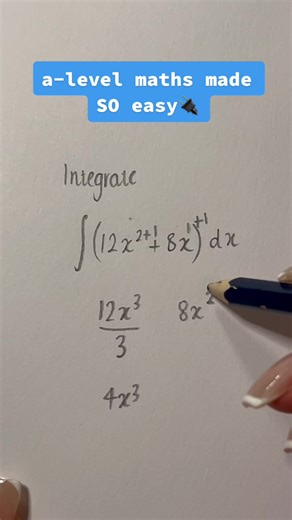 a-level maths made
SO easy🔌
Integrate
∫(12x²⁺¹ + 8x¹)⁺¹ dx
12x³ 8x²
3
4x³